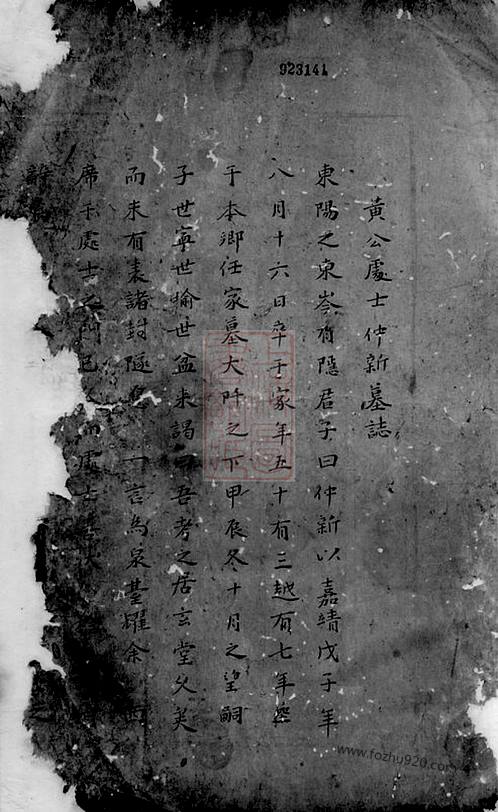 923141
黃公處士仲新墓誌
東陽之東岑有隱君子曰仲新以嘉靖戊子年
八月十六日卒于家年五十有三越有七年葬
于本鄉任家墓大阡之下甲辰冬十月之望嗣
子世寧世愉世盆來謁曰吾考之居玄堂久矣
而未有表諸封隧 一言為泉臺耀余
席于處士之門 處士
www.fozhu920.com